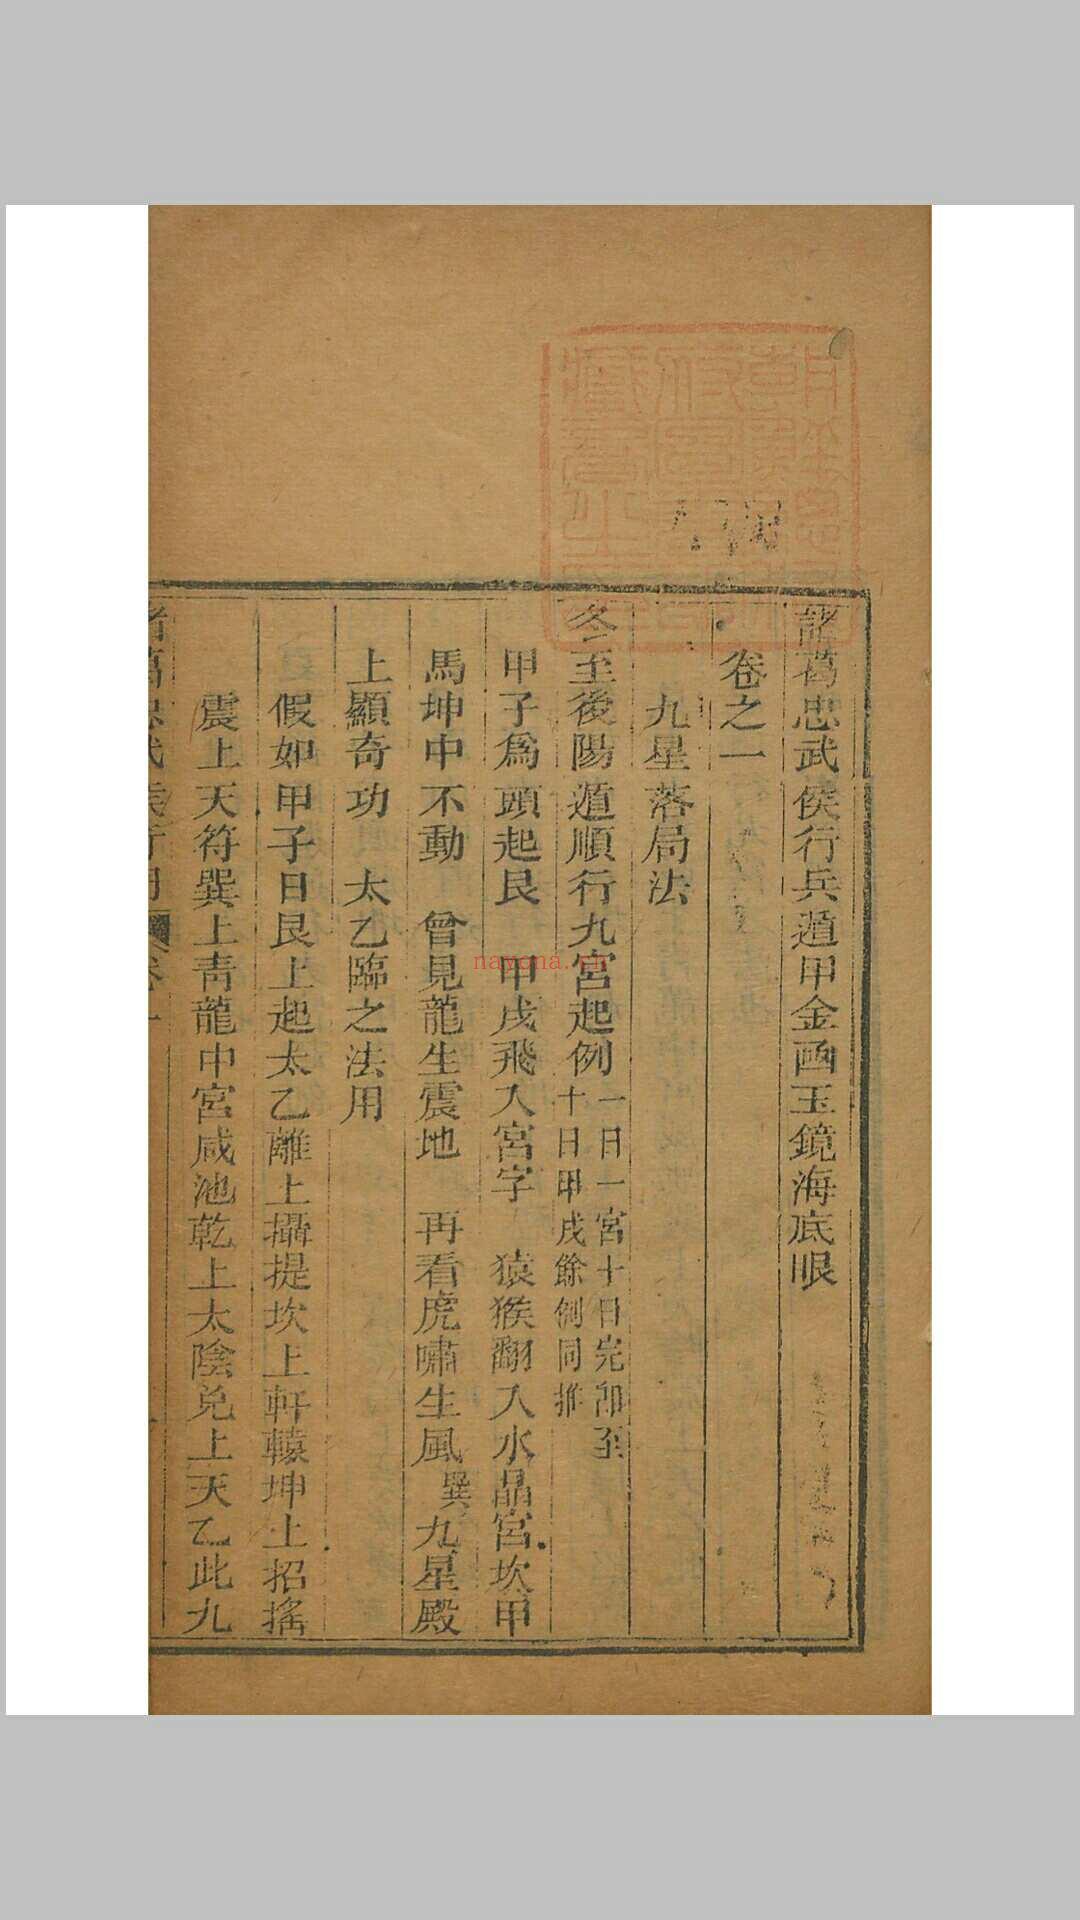 諸葛忠武侯行兵遁甲金函玉鏡海底眼
卷之一
九星落局法
冬至後陽遁順行九宮起例一日一宮十日完卸至
十日甲戌餘例同推
甲子爲頭起艮 甲戌飛入宮字 猿猴翻入水晶宮坎甲
馬坤中不動 曾見龍生震地 再看虎嘯生風巽九星殿
上顯奇功 太乙臨之法用
假如甲子日艮上起太乙離上攝提坎上軒轅坤上招搖
震上天符巽上青龍中宮咸池乾上太陰兌上天乙此九
nayona.cn